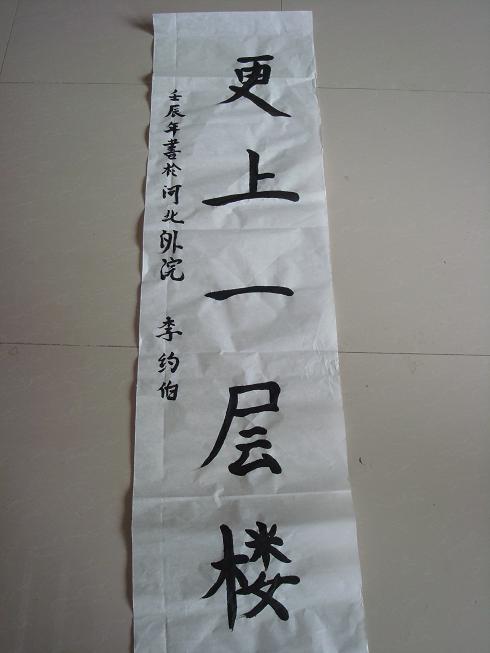 更上一层楼
壬辰年書於河北外院 李约伯